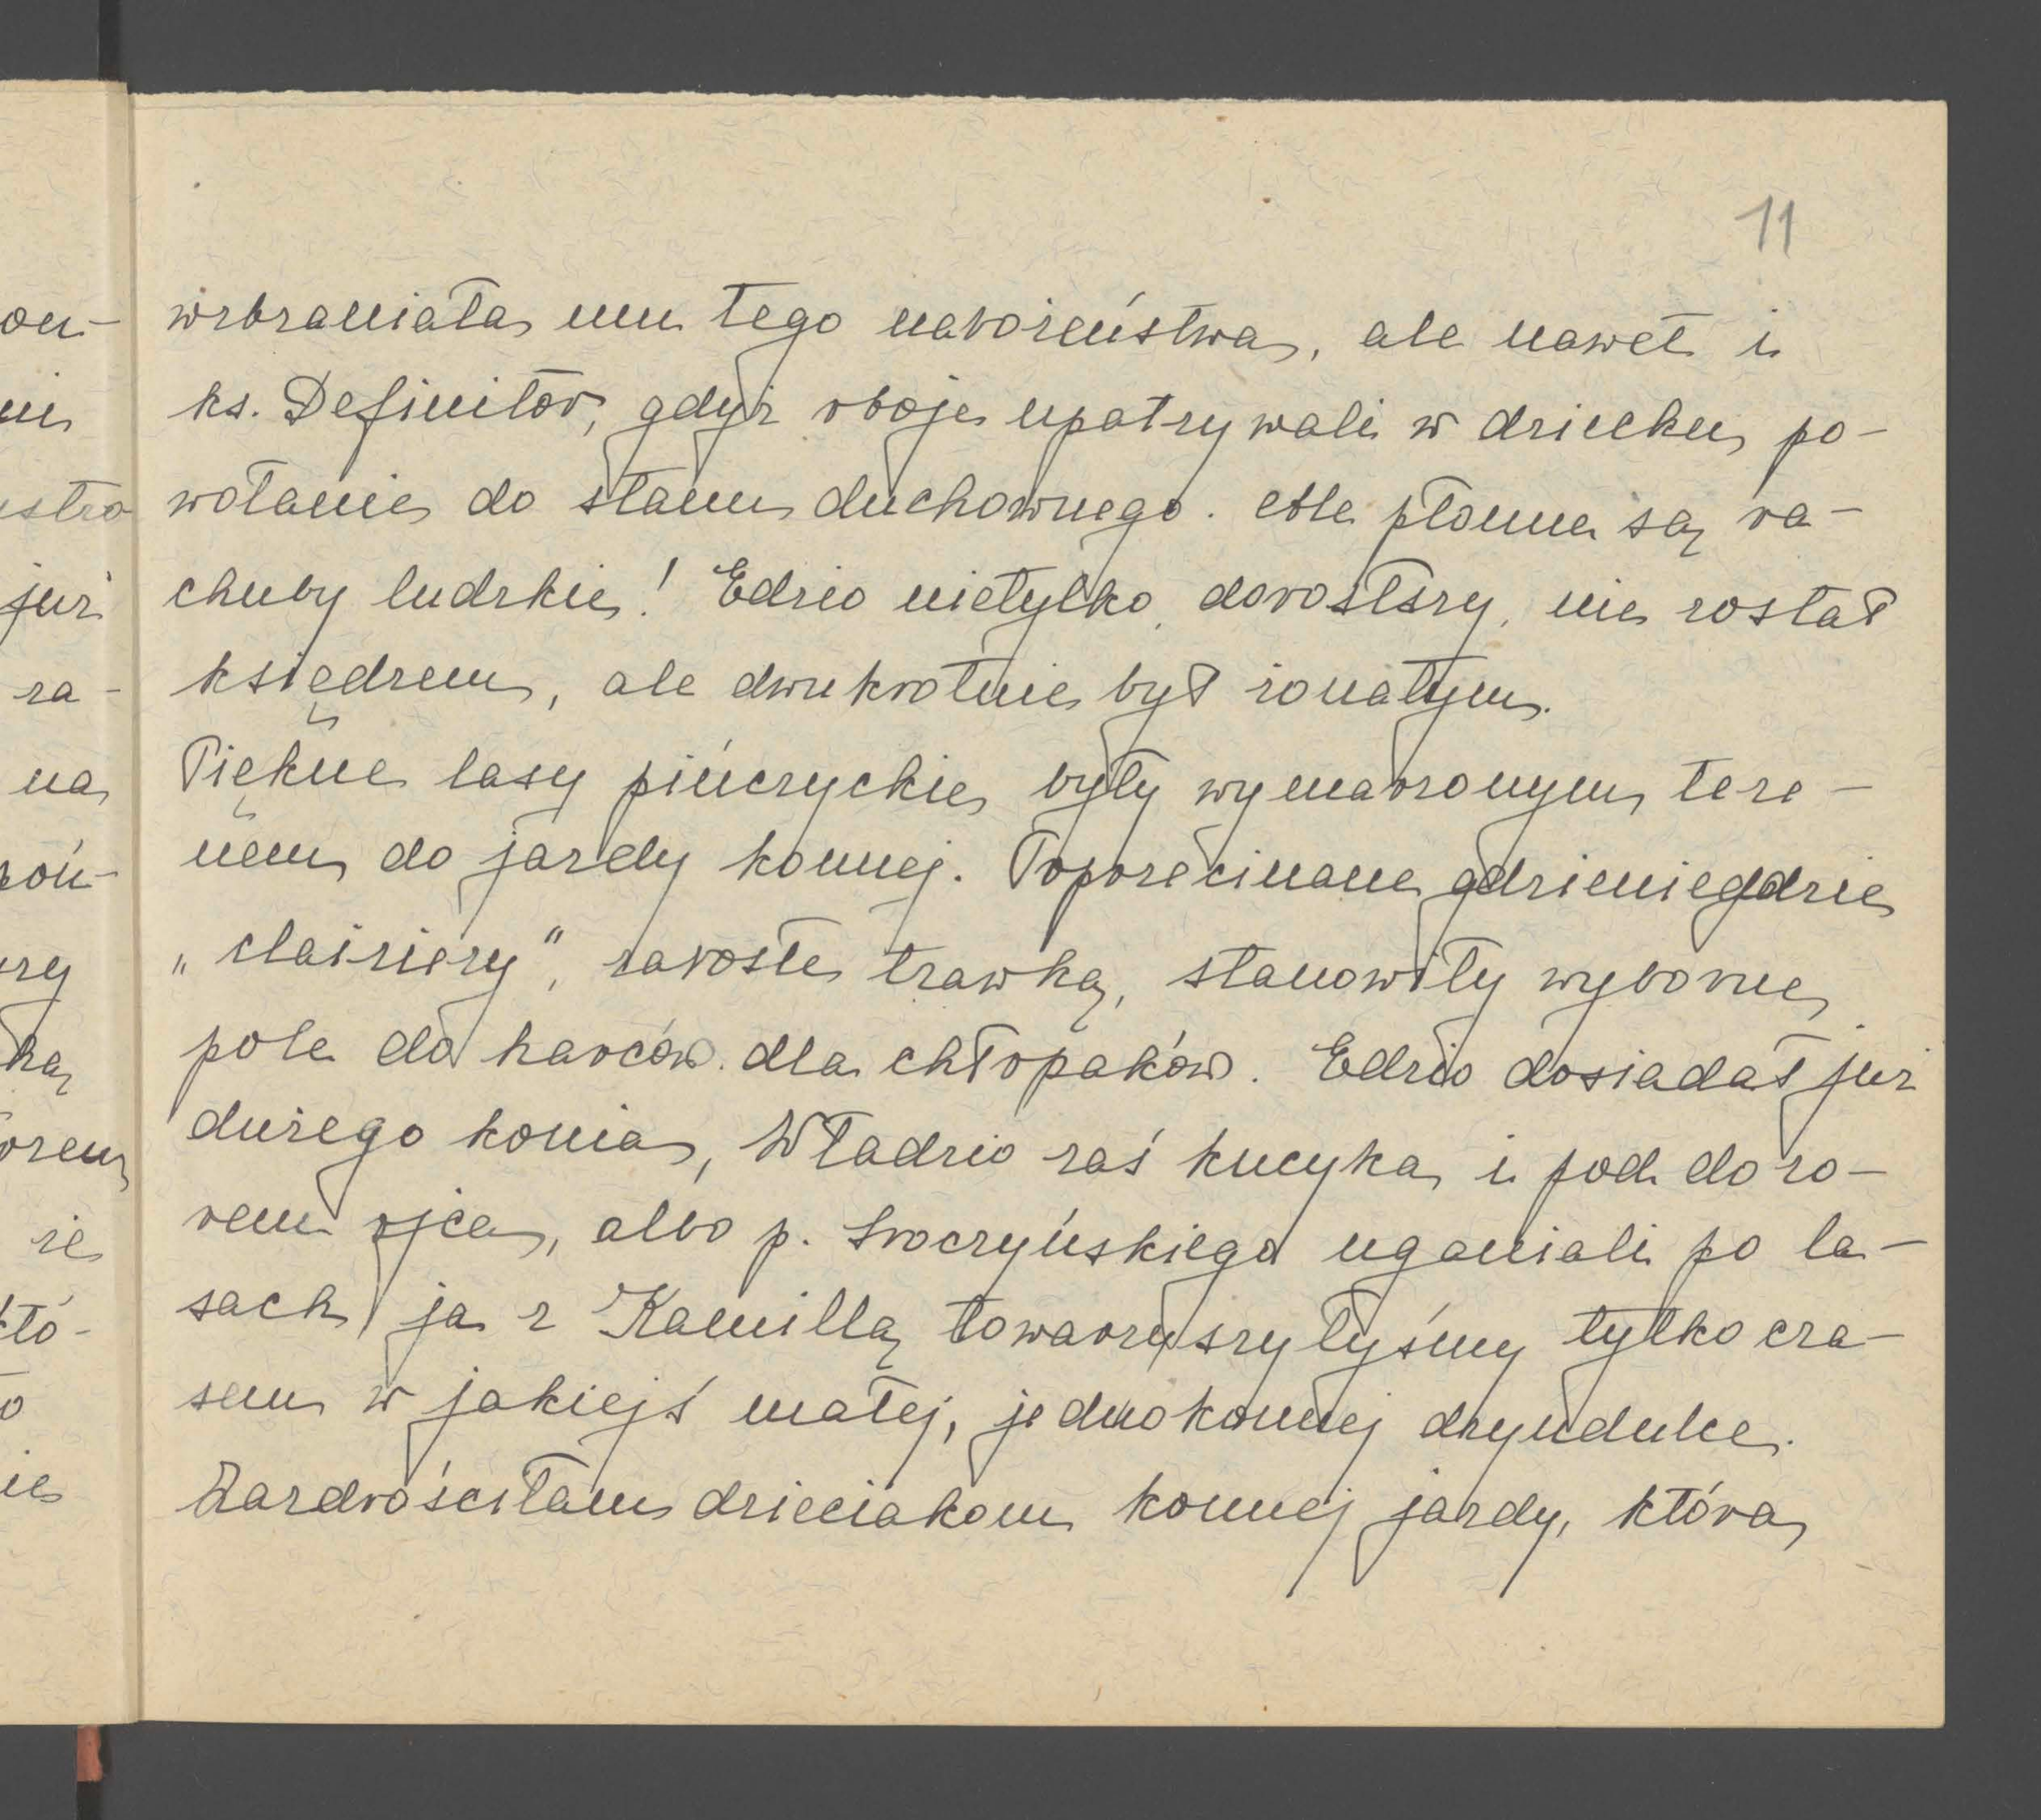 11
wzbraniała mu tego nabożeństwa, ale nawet i
ks. Definitor, gdyż oboje upatrywali w dziecku po-
wołanie do stanu duchownego. Ale płonne są ra-
chuby ludzkie! Edzio nietylko, dorósłszy, nie został
księdzem, ale dwukrotnie był żonatym.
Piękne lasy pińczyckie były wymarzonym tere-
nem do jazdy konnej. Poprzecinane gdzieniegdzie
„clairiery", zarosłe trawką, stanowiły wyborne
pole do harców dla chłopaków. Edzio dosiadał już
dużego konia, Władzio zaś kucyka i pod dozo-
rem ojca, albo p. Sroczyńskiego uganiali po la-
sach, ja z Kamillą towarzyszyłyśmy tylko cza-
sem w jakiejś małej, jednokonnej dryndulce.
Zazdrościłam dzieciakom konnej jazdy, która
on-
ni
istro
już
za-
na
koń-
rzy
ką
orem
że
któ-
o
ie